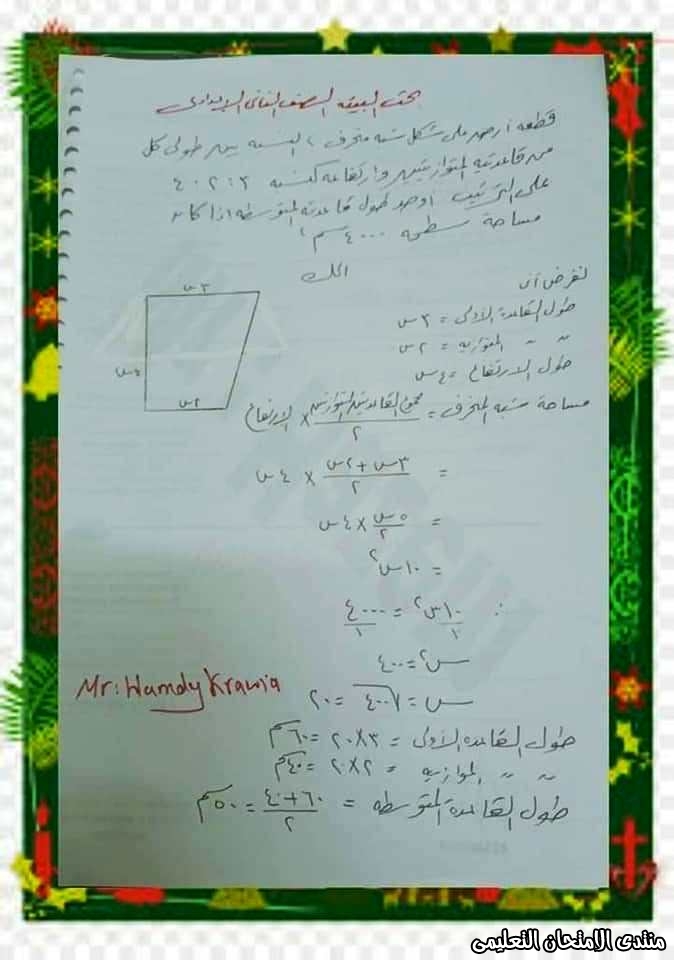 بحث البيئه الصف الثانى الإعدادى
قطعه أرض على شكل شبه منحرف ، النسبه بين طولى كل
من قاعدتيه المتوازيتين وارتفاعه كنسبه ٣ : ٢ : ٤
على الترتيب أوجد طول قاعدته المتوسطه اذا كانت
مساحة سطحه ٤٠٠٠ سم٢
الحل
نفرض أن
طول القاعدة الأولى = ٣س
〃 〃 الموازيه = ٢س
طول الارتفاع = ٤س
٣س
٤س
٢س
مساحة شبه المنحرف = مجموع القاعدتين المتوازيتين / ٢ × الارتفاع
= ٣س + ٢س / ٢ × ٤س
= ٥س / ٢ × ٤س
= ١٠س٢
∴ ١٠س٢ / ١ = ٤٠٠٠ / ١
س٢ = ٤٠٠
س = √٤٠٠ = ٢٠
Mr: Hamdy Krawia
طول القاعدة الأولى = ٣ × ٢٠ = ٦٠ سم
〃 〃 الموازيه = ٢ × ٢٠ = ٤٠ سم
طول القاعدة المتوسطه = ٦٠ + ٤٠ / ٢ = ٥٠ سم
منتدى الامتحان التعليمى